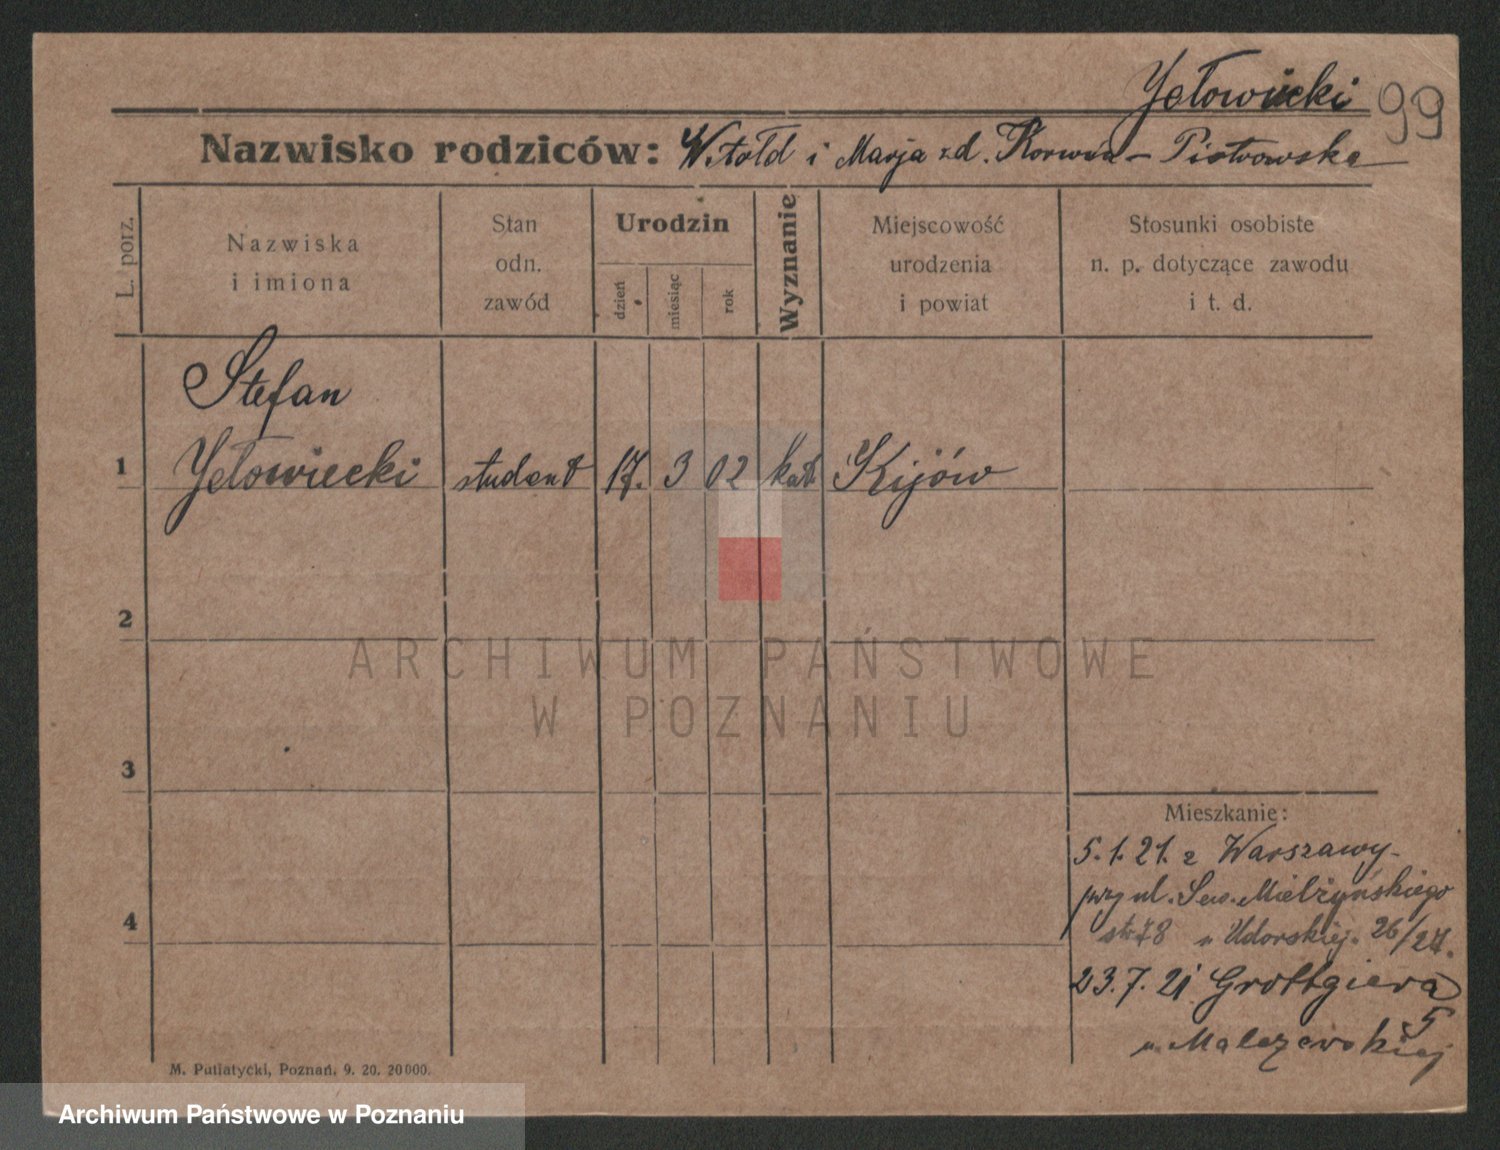 Jełowicki 99
Nazwisko rodziców: Witołd i Marja zd. Korwin-Piotrowska
L. porz.
Nazwiska
i imiona
Stan
odn.
zawód
Urodzin
dzień
miesiąc
rok
Wyznanie
Miejscowość
urodzenia
i powiat
Stosunki osobiste
n. p. dotyczące zawodu
i t. d.
Stefan
1 Jełowiecki student 17. 3 02 kat. Kijów
2
ARCHIWUM PAŃSTWOWE
W POZNANIU
3
Mieszkanie:
5.1.21. z Warszawy-
przy ul. Sew. Mielżyńskiego
4
u Udorskiej. 26/27.
23.7.21 Grottgiera 5
u Malczewskiej
M. Putiatycki, Poznań. 9. 20. 20000.
Archiwum Państwowe w Poznaniu